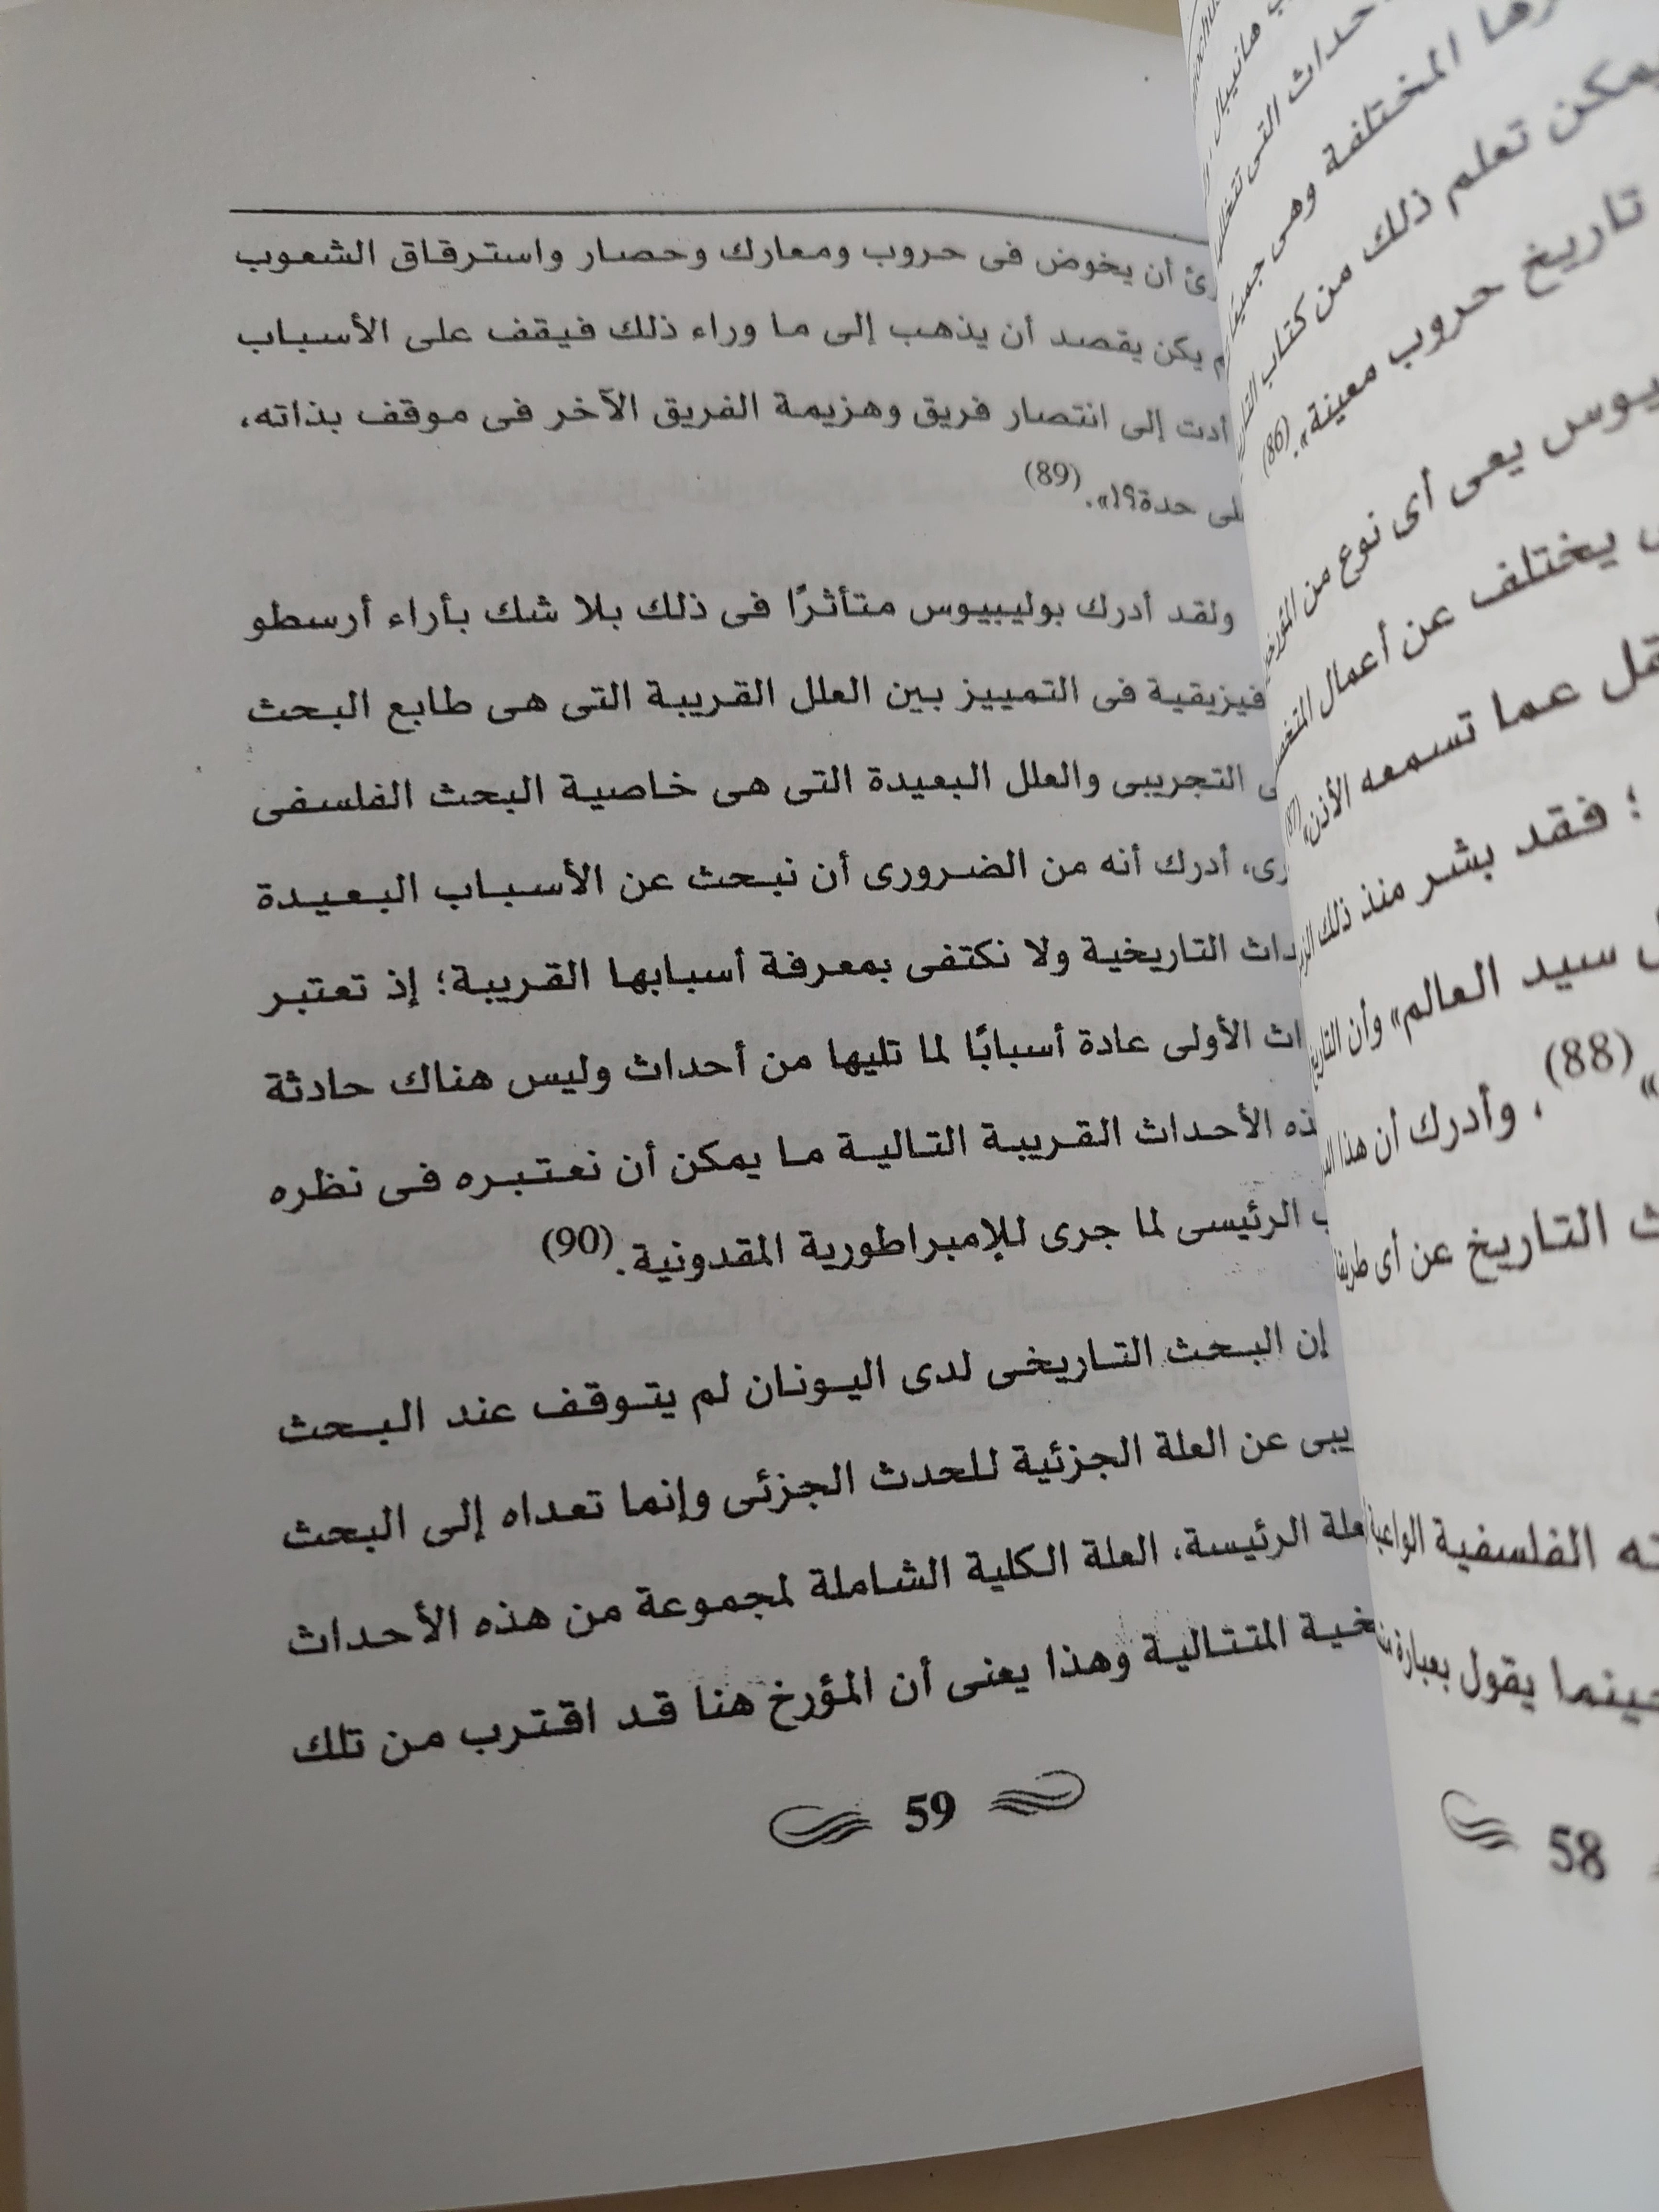 أن يخوض فى حروب ومعارك وحصار واسترقاق الشعوب
يكن يقصد أن يذهب إلى ما وراء ذلك فيقف على الأسباب
أدت إلى انتصار فريق وهزيمة الفريق الآخر فى موقف بذاته،
حدة؟!».(89)
ولقد أدرك بوليبيوس متأثرًا فى ذلك بلا شك بأراء أرسطو
فيزيقية فى التمييز بين العلل القريبة التى هى طابع البحث
التجريبى والعلل البعيدة التى هى خاصية البحث الفلسفى
أدرك أنه من الضرورى أن نبحث عن الأسباب البعيدة
التاريخية ولا نكتفى بمعرفة أسبابها القريبة؛ إذ تعتبر
الأولى عادة أسبابًا لما تليها من أحداث وليس هناك حادثة
الأحداث القريبة التالية ما يمكن أن نعتبره فى نظره
الرئيسى لما جرى للإمبراطورية المقدونية.(90)
إن البحث التاريخى لدى اليونان لم يتوقف عند البحث
عن العلة الجزئية للحدث الجزئى وإنما تعداه إلى البحث
الرئيسة، العلة الكلية الشاملة لمجموعة من هذه الأحداث
المتتالية وهذا يعنى أن المؤرخ هنا قد اقترب من تلك
59
المختلفة وهى
يمكن تعلم ذلك من كتاب
تاريخ حروب معينة».(86)
يعى أى نوع من
يختلف عن أعمال
عما تسمعه الأذن»(87)
؛ فقد بشر منذ ذلك
سيد العالم» وأن
»(88)، وأدرك أن هذا
التاريخ عن أى
الفلسفية
يقول بعبارة
58